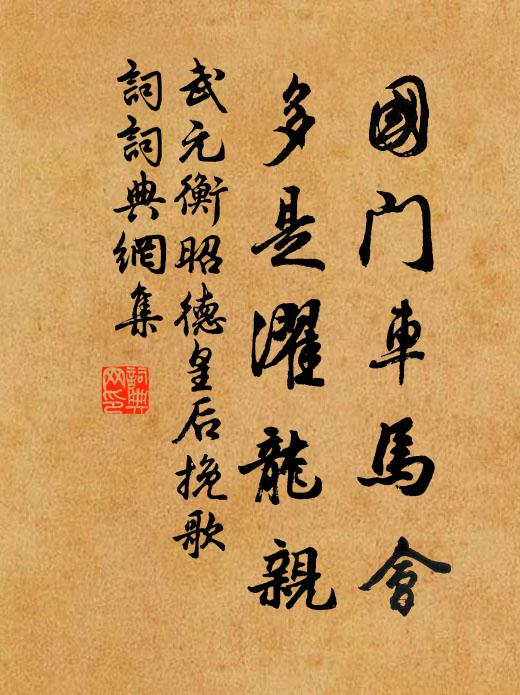 國門車馬會
多是濯龍親
武元衡昭德皇后挽歌
詞詞典網集
詞典
网印